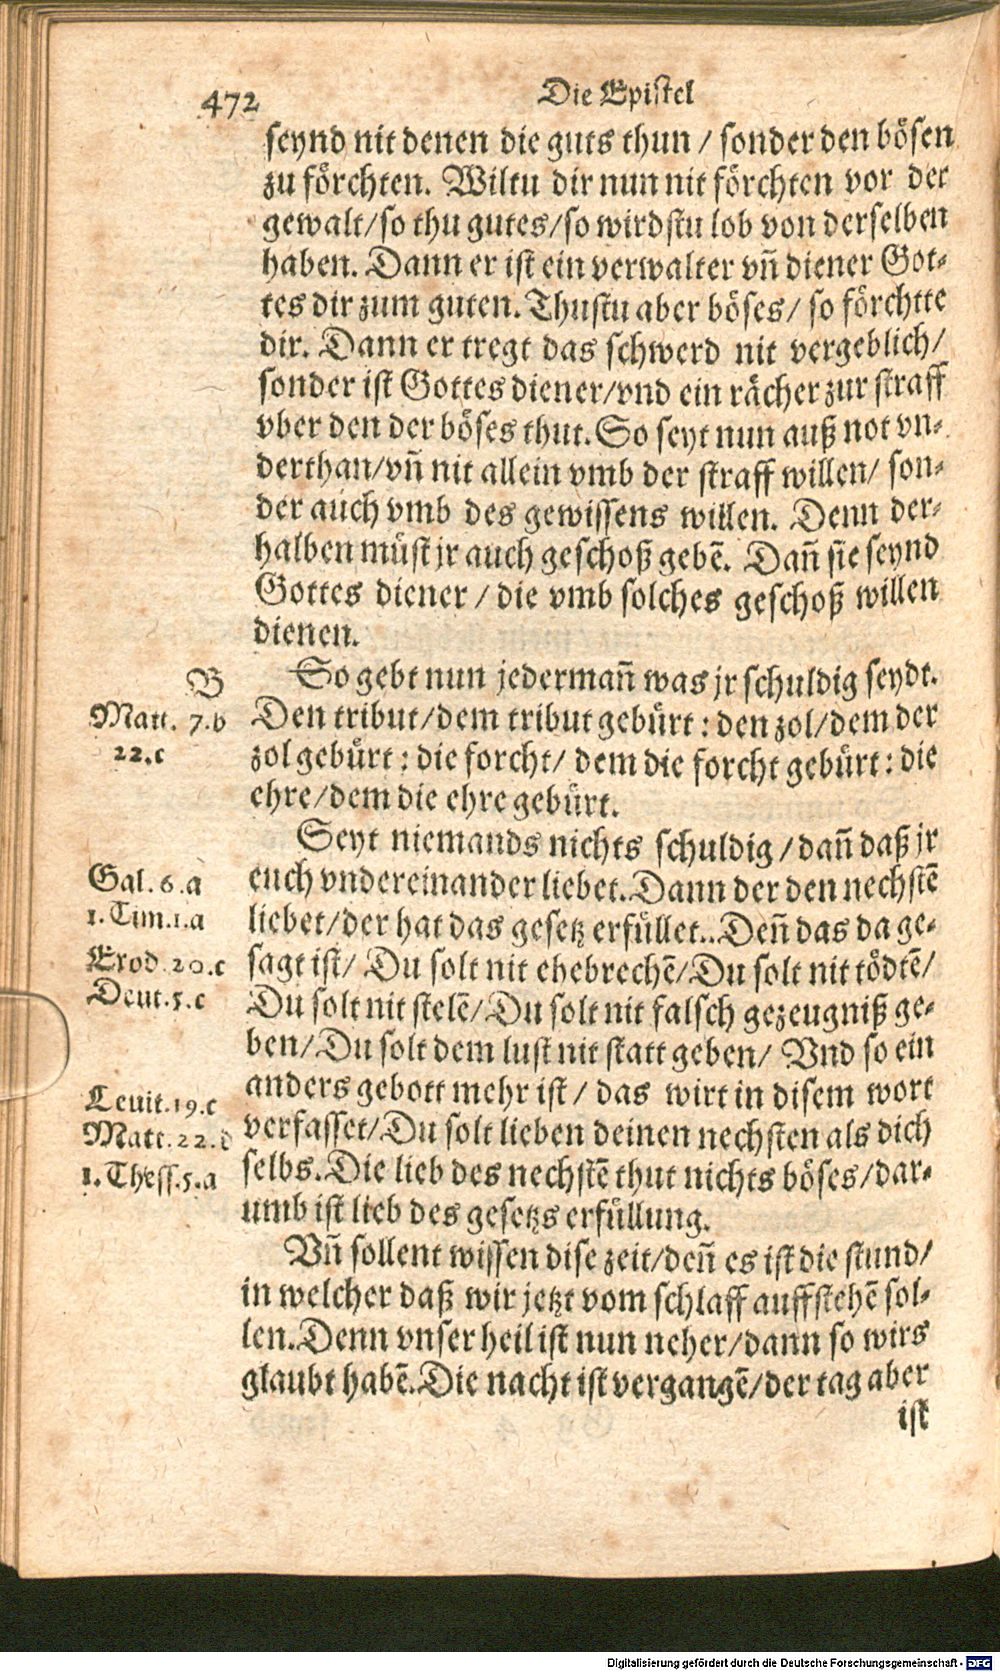 472
Die Epistel
seynd nit denen die guts thun / sonder den bösen
zu förchten. Wiltu dir nun nit förchten vor der
gewalt/so thu gutes/so wirdstu lob von derselben
haben. Dann er ist ein verwalter vñ diener Got-
tes dir zum guten. Thustu aber böses/ so förchtte
dir. Dann er tregt das schwerd nit vergeblich/
sonder ist Gottes diener/vnd ein rächer zur straff
vber den der böses thut. So seyt nun auß not vn-
derthan/vñ nit allein vmb der straff willen/ son-
der auch vmb des gewissens willen. Denn der-
halben müst jr auch geschoß gebẽ. Dañ sie seynd
Gottes diener / die vmb solches geschoß willen
dienen.
B
So gebt nun jedermañ was jr schuldig seydt.
Matt. 7.b
Den tribut/dem tribut gebürt: den zol/dem der
22.c
zol gebürt: die forcht/ dem die forcht gebürt: die
ehre/dem die ehre gebürt.
Seyt niemands nichts schuldig/dañ daß jr
Gal. 6.a
euch vndereinander liebet. Dann der den nechstẽ
1. Tim.1.a
liebet/der hat das gesetz erfüllet.. Deñ das da ge-
Exod. 20.c
sagt ist/ Du solt nit ehebrechẽ/Du solt nit tödtẽ/
Deut.5.c
Du solt nit stelẽ/Du solt nit falsch gezeugniß ge-
ben/Du solt dem lust nit statt geben/ Vnd so ein
anders gebott mehr ist / das wirt in disem wort
Leuit.19.c
verfasset/Du solt lieben deinen nechsten als dich
Matt.22.d
selbs. Die lieb des nechstẽ thut nichts böses/dar-
1. Thess.5.a
umb ist lieb des gesetzs erfüllung.
Vñ sollent wissen dise zeit/deñ es ist die stund/
in welcher daß wir jetzt vom schlaff auffstehẽ sol-
len. Denn vnser heil ist nun neher/dann so wirs
glaubt habẽ. Die nacht ist vergangẽ/der tag aber
ist
Digitalisierung gefördert durch die Deutsche Forschungsgemeinschaft - DFG